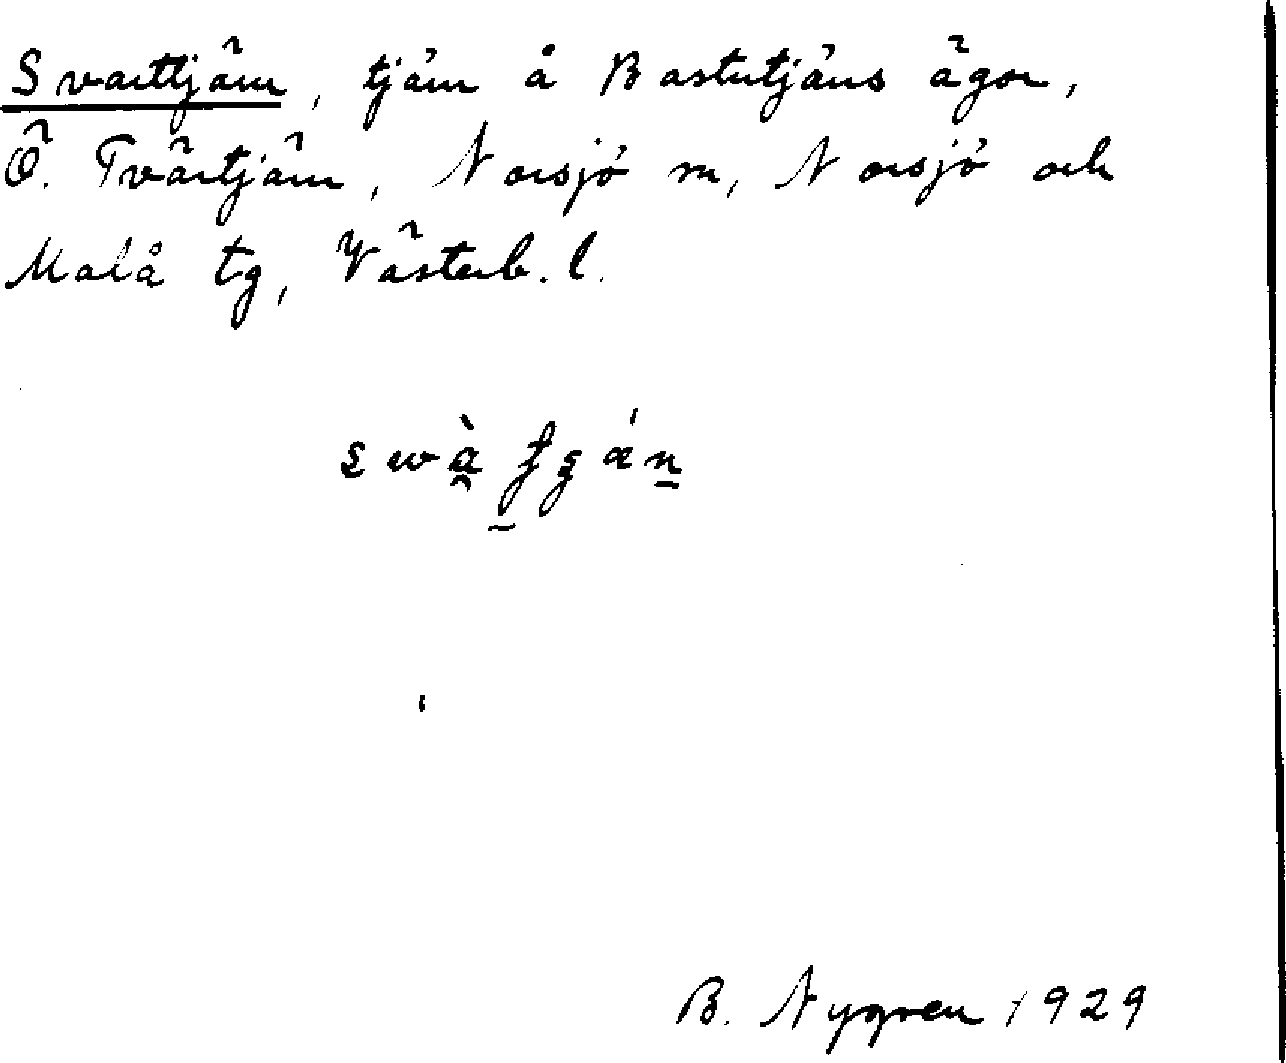 Svarttjärn, tjärn å Bastutjärns ägor,
Ö. Tvärtjärn, Norsjö sn, Norsjö och
Malå tg, Västerb. l.
B. Nygren 1929